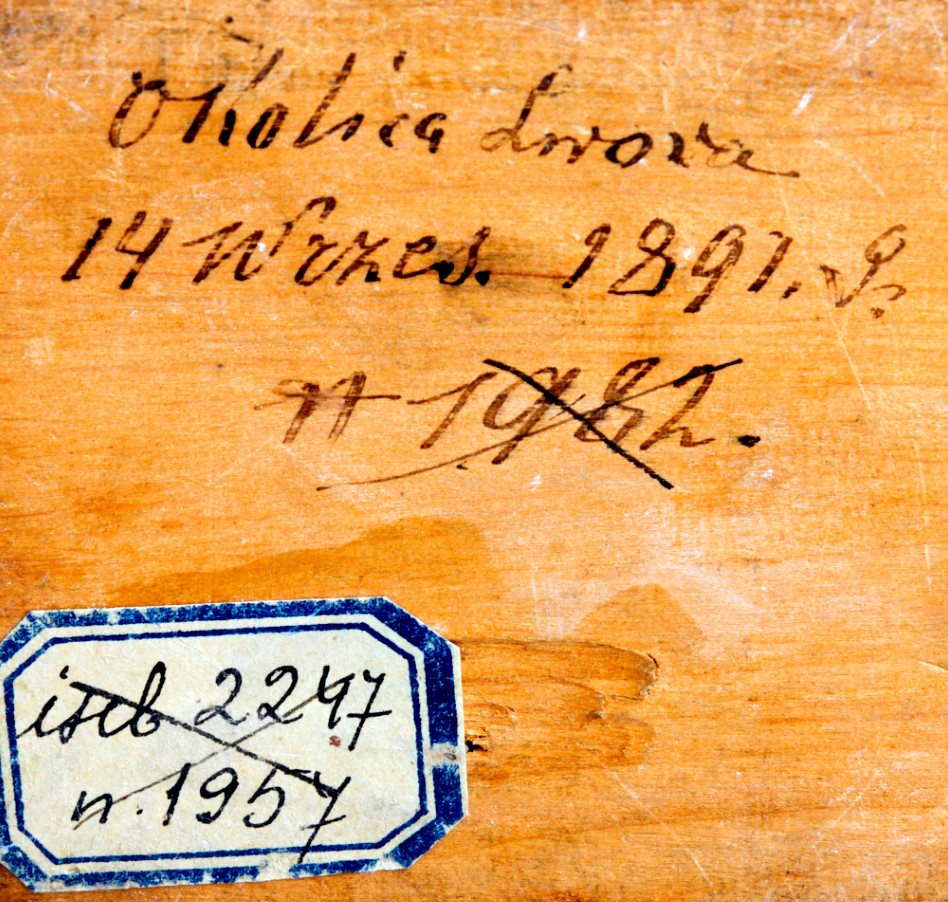 Okolica Lwowa
14 Wrzes. 1891.
1982.
2247
n. 1957